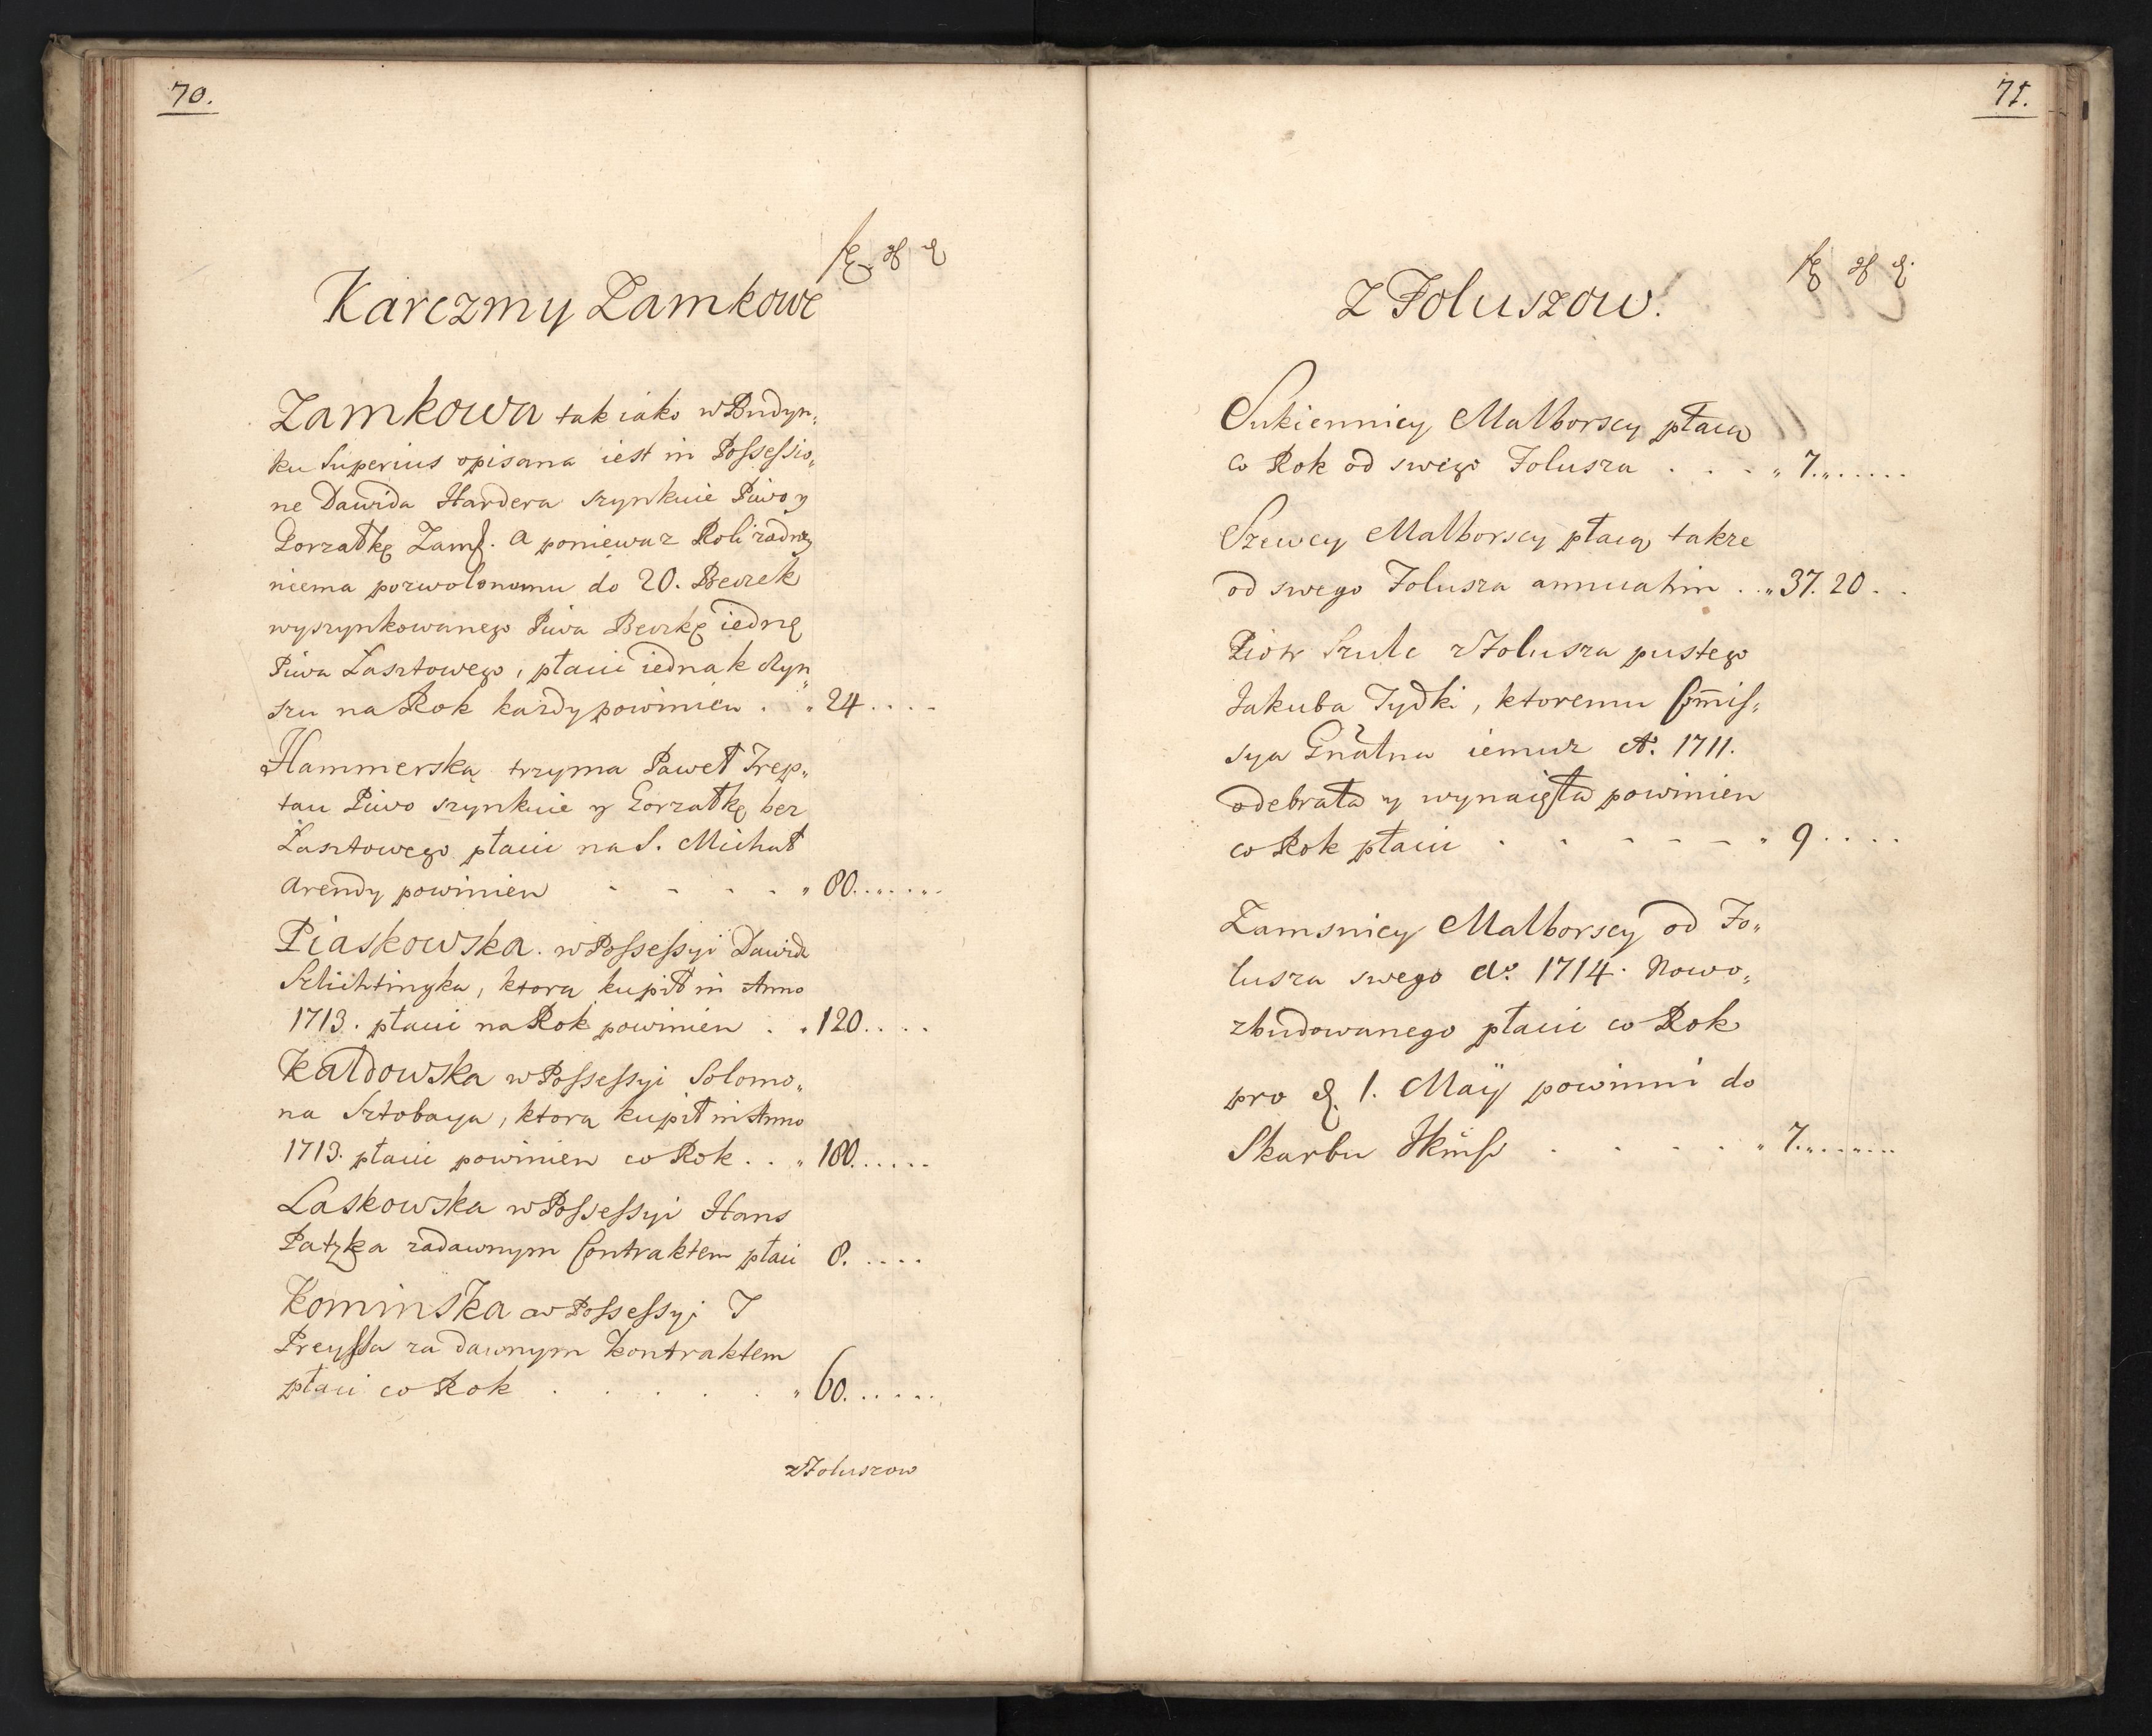 70.
Karczmy Zamkowe
Zamkowa tak iako w Budyn„
ku Superius opisana iest in Possessio„
ne Dawida Hardera szynkuie Piwo y
Gorzałkę Zamk. a poniewaz Roli zadney
niema pozwolonamu do 20. Beczek
wyszynkowanego Piwa Beczkę iednę
Piwa Zasztowego, płacic iednak czyn„
szu na Rok kazdy powinien . „ 24 . . . .
Hammerską trzyma Paweł Trep„
tau Piwo szynkuie y Gorzałkę bez
Zasztowego płacic na S. Michał
Arendy powinien . . . . „ 80. . . . .
Piaskowska. w Possessyi Dawida
Szlichtingka, ktorą kupił in Anno
1713. płacic na Rok powinien . . „ 120. . . .
Kałdowska w Possessyi Solomo„
na Sztobaya, ktorą kupił in Anno
1713. płacic powinien co Rok . . „ 180. . . . .
Laskowska w Possessyi Hans
Patzka za dawnym Contraktem płaci 8. . . . .
Kominska w Possessyi J
Preyssa za dawnym Kontraktem
płaci co Rok . . . . . „ 60. . . . .
z Foluszow
71.
Z Foluszow.
Sukiennicy Malborscy płacą
co Rok od swego Folusza . . . „ 7. . . . . .
Szewcy Malborscy płacą takze
od swego Folusza annuatim . . „ 37. 20 . .
Piotr Szulc z Folusza pustego
Jakuba Tydki, ktoremu Com̄is„
sya Gnałna iemuz Ao. 1711.
odebrała y wynaięła powinien
co Rok płacic . . . . . . „ 9 . . . .
Zamsnicy Malborscy od Fo„
lusza swego Ao. 1714. Nowo„
zbudowanego płacic co Rok
pro d. 1. Maÿ powinni do
Skarbu . . . . . „ 7. . . . . .